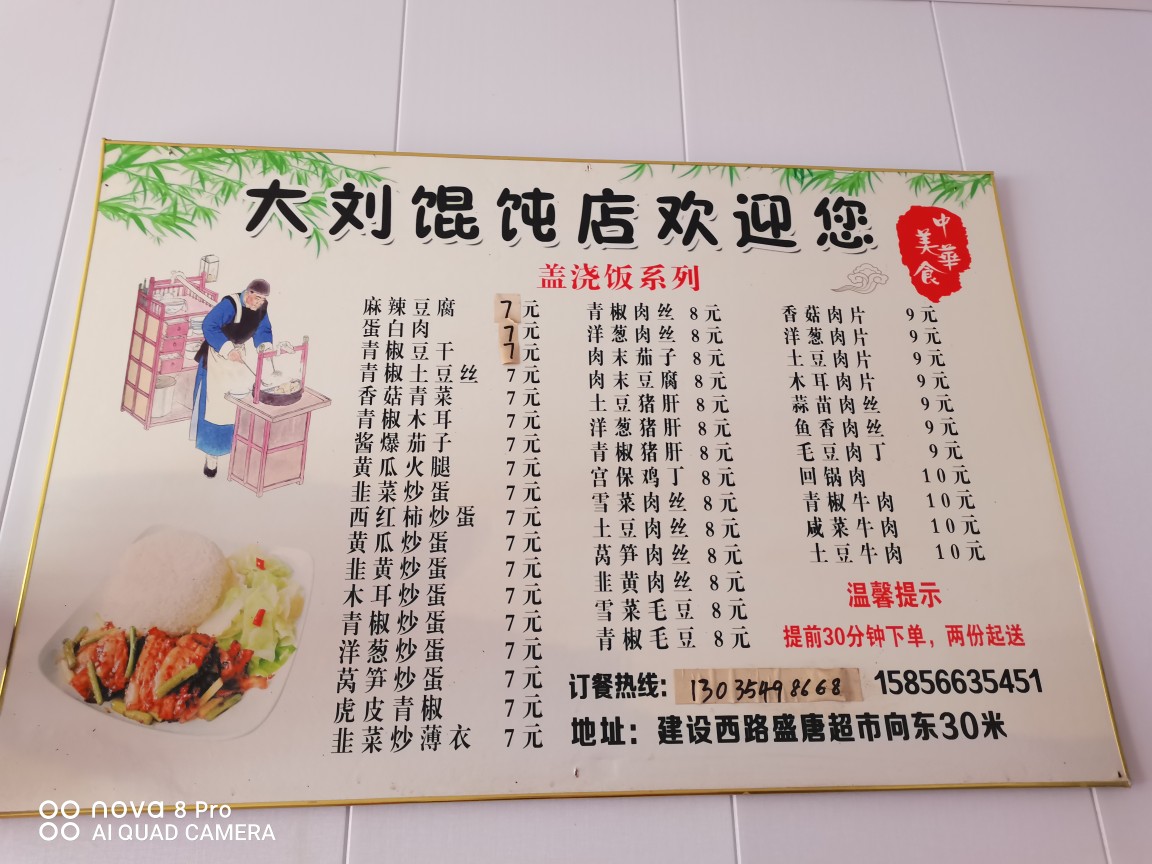 大刘馄饨店欢迎您
中華
美食
盖浇饭系列
麻辣豆腐 7元
蛋白肉 7元
青椒豆干 7元
青椒土豆丝 7元
香菇青菜 7元
青椒木耳 7元
酱爆茄子 7元
黄瓜火腿 7元
韭菜炒蛋 7元
西红柿炒蛋 7元
黄瓜炒蛋 7元
韭黄炒蛋 7元
木耳炒蛋 7元
青椒炒蛋 7元
洋葱炒蛋 7元
莴笋炒蛋 7元
虎皮青椒 7元
韭菜炒薄衣 7元
青椒肉丝 8元
洋葱肉丝 8元
肉末茄子 8元
肉末豆腐 8元
土豆猪肝 8元
洋葱猪肝 8元
青椒猪肝 8元
宫保鸡丁 8元
雪菜肉丝 8元
土豆肉丝 8元
莴笋肉丝 8元
韭黄肉丝 8元
雪菜毛豆 8元
青椒毛豆 8元
香菇肉片 9元
洋葱肉片 9元
土豆肉片 9元
木耳肉片 9元
蒜苗肉丝 9元
鱼香肉丝 9元
毛豆肉丁 9元
回锅肉 10元
青椒牛肉 10元
咸菜牛肉 10元
土豆牛肉 10元
温馨提示
提前30分钟下单，两份起送
订餐热线：13035498668 15856635451
地址：建设西路盛唐超市向东30米
nova 8 Pro
AI QUAD CAMERA